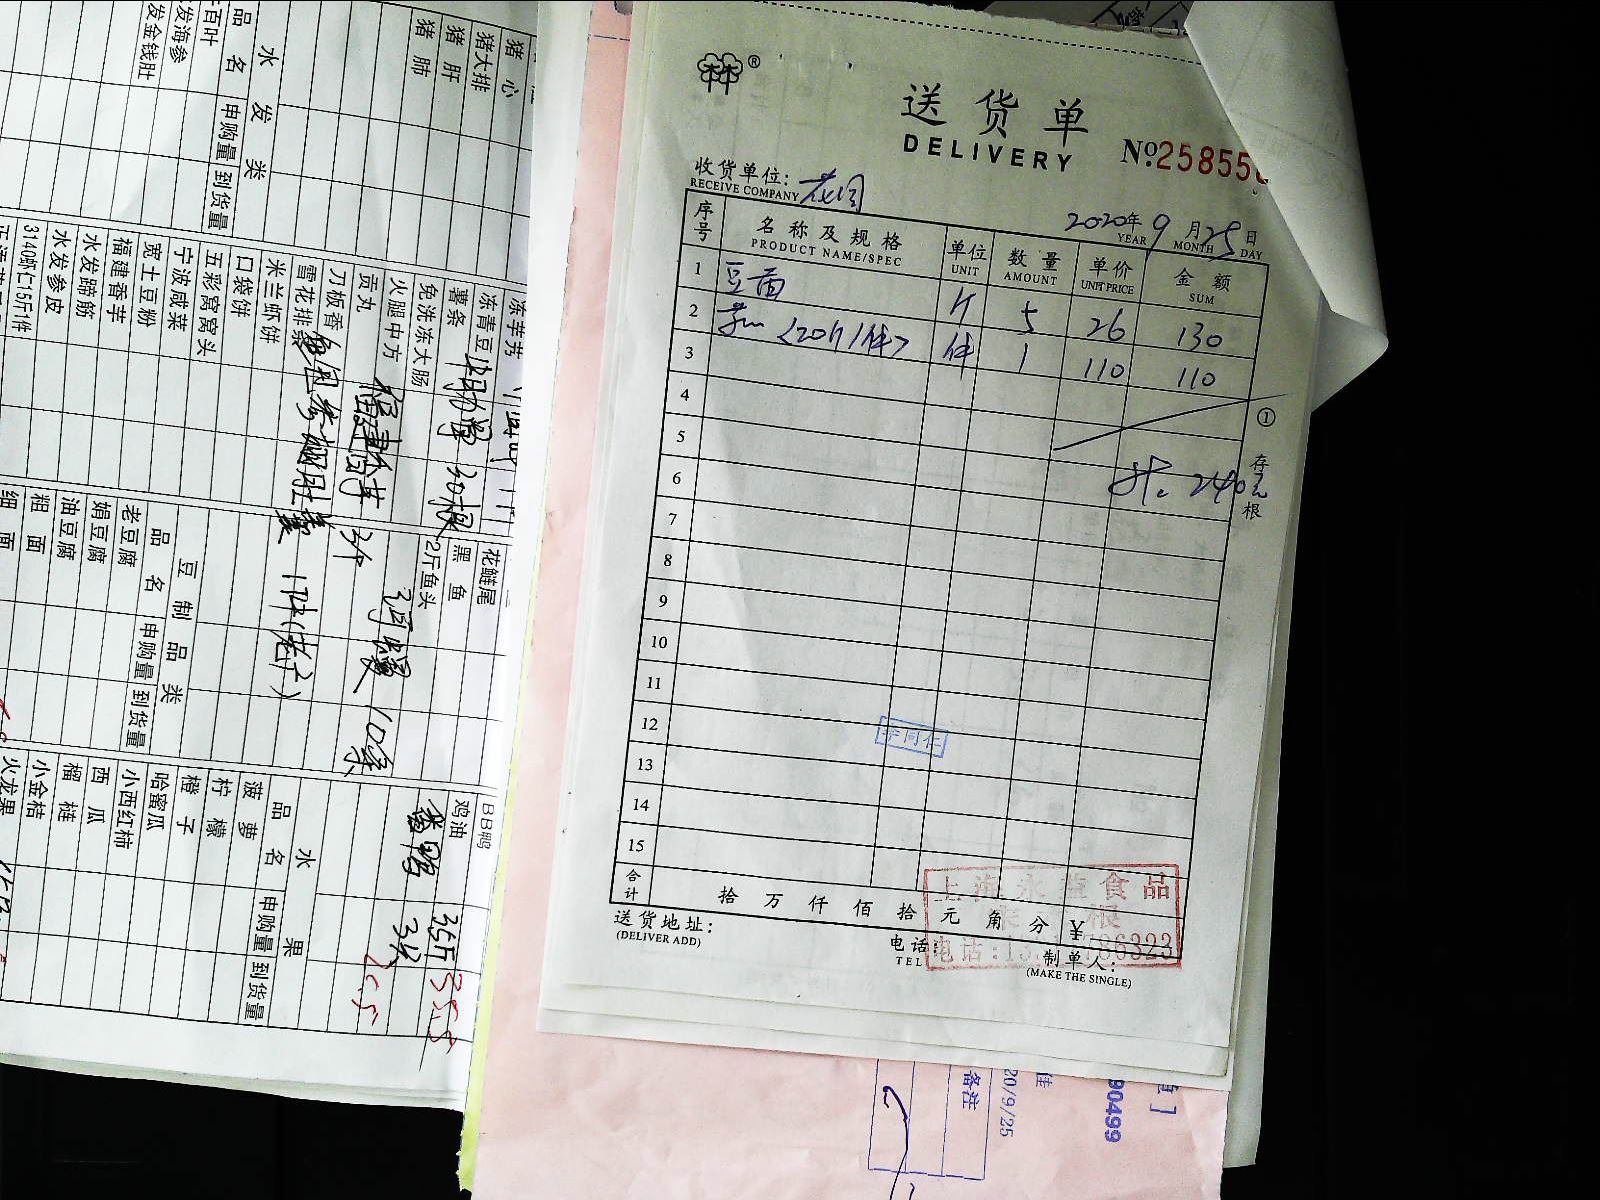 ®
送货单
DELIVERY
№ 25855
收货单位: 花园
RECEIVE COMPANY
2020年9月25日
YEAR MONTH DAY
序号 名称及规格 单位 数量 单价 金额
PRODUCT NAME/SPEC UNIT AMOUNT UNIT PRICE SUM
1 豆苗 斤 5 26 130
2 <20斤/件> 件 1 110 110
3
4
5
6 共: 240元
7
8
9
10
11
12
13
14
15
① 存根
李同仁
合计 拾 万 仟 佰 拾 元 角 分 ¥
上海永益食品
根
电话:1 786323
送货地址:
(DELIVER ADD)
电话:
TEL
制单人:
(MAKE THE SINGLE)
备注
20/9/25
90499
猪心
猪大排
猪肝
猪肺
水发类
品名 申购量 到货量
百叶
发海参
发金钱肚
冻芋艿
冻青豆
薯条
免洗冻大肠
火腿中方
贡丸
刀板香
雪花排
米兰虾饼
口袋饼
五彩窝窝头
宁波咸菜
宽土豆粉
福建香芋
水发蹄筋
水发参皮
3140虾仁15斤1件
30根
花鲢尾
黑鱼
2斤鱼头
10条
豆制品类
品名 申购量 到货量
老豆腐
娟豆腐
油豆腐
粗面
细面
BB鸭
鸡油
番鸭 3只
35斤 35.8
水果
品名 申购量 到货量
菠萝
柠檬
橙子
哈蜜瓜
小西红柿
西瓜
榴梿
小金桔
火龙果